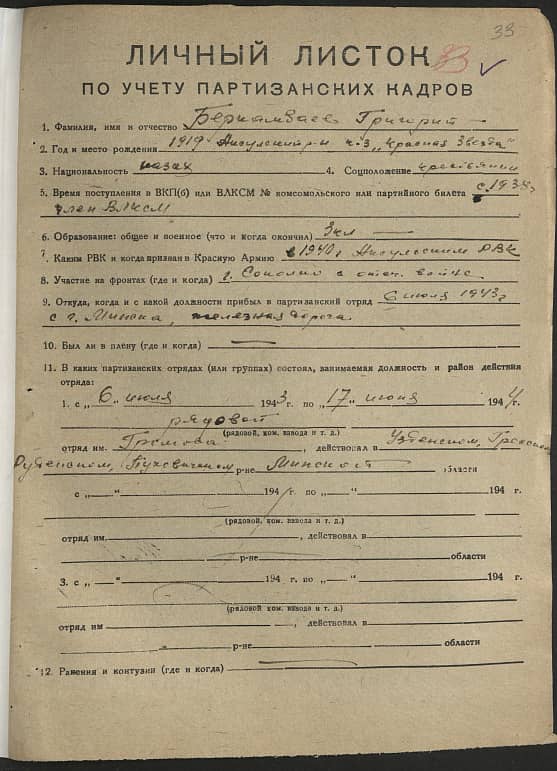 33
ЛИЧНЫЙ ЛИСТОК
ПО УЧЕТУ ПАРТИЗАНСКИХ КАДРОВ
1. Фамилия, имя и отчество Григорий
2. Год и место рождения 1919 к-з „Красная Звезда“
3. Национальность казах 4. Соцположение крестьянин
5. Время поступления в ВКП(б) или ВЛКСМ № комсомольского или партийного билета
член ВЛКСМ
6. Образование: общее и военное (что и когда окончил) 3 кл
7. Каким РВК и когда призван в Красную Армию в 1940 г РВК
8. Участие на фронтах (где и когда) г. в отеч. войне
9. Откуда, когда и с какой должности прибыл в партизанский отряд 6 июля 1943 г
с г. Минска, железная дорога.
10. Был ли в плену (где и когда) —
11. В каких партизанских отрядах (или группах) состоял, занимаемая должность и район действия
отряда:
1. с „6“ июля 1943 г. по „17“ июня 1944 г.
рядовой
(рядовой, ком. взвода и т. д.)
отряд им. Громова, действовал в Узденском,
Руденском, Пуховичском р-не Минской области
с „—“ 194 г. по „—“ 194 г.
(рядовой, ком. взвода и т. д.)
отряд им. , действовал в
р-не области
3. с „—“ 194 г. по „—“ 194 г.
(рядовой, ком. взвода и т. д.)
отряд им , действовал в
р-не области
12. Ранения и контузии (где и когда) —